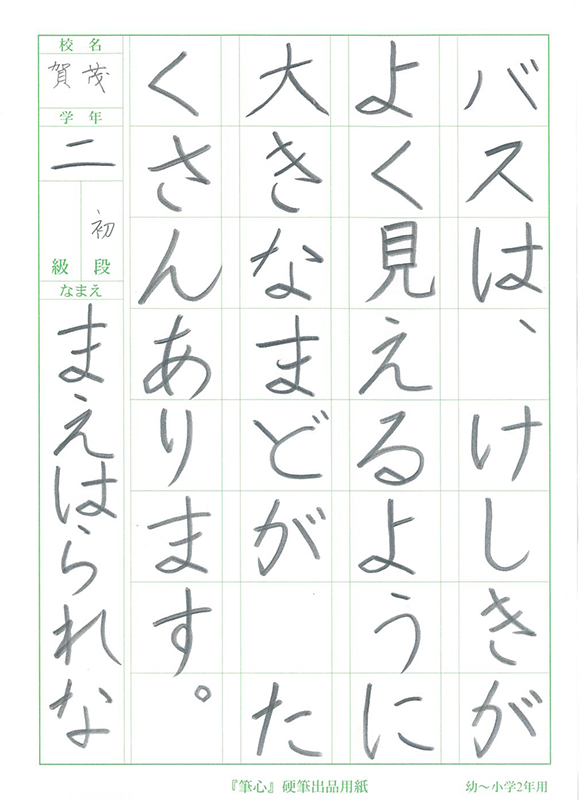 バスは、 けしきが
よく見えるように
大きなまどが た
くさんあります。
校名
賀茂
学年
二
級 段
初
なまえ
まえはられな
『筆心』硬筆出品用紙
幼〜小学2年用